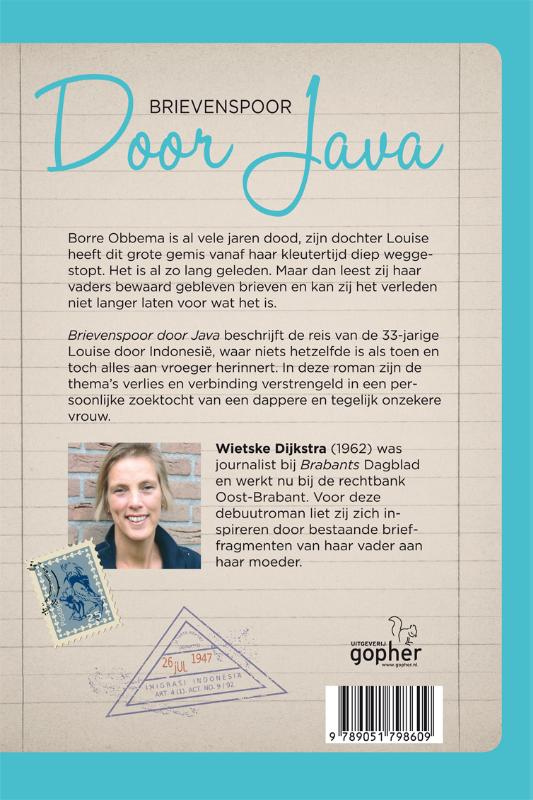 BRIEVENSPOOR
Door Java
Borre Obbema is al vele jaren dood, zijn dochter Louise
heeft dit grote gemis vanaf haar kleutertijd diep wegge-
stopt. Het is al zo lang geleden. Maar dan leest zij haar
vaders bewaard gebleven brieven en kan zij het verleden
niet langer laten voor wat het is.
Brievenspoor door Java beschrijft de reis van de 33-jarige
Louise door Indonesië, waar niets hetzelfde is als toen en
toch alles aan vroeger herinnert. In deze roman zijn de
thema's verlies en verbinding verstrengeld in een per-
soonlijke zoektocht van een dappere en tegelijk onzekere
vrouw.
Wietske Dijkstra (1962) was
journalist bij Brabants Dagblad
en werkt nu bij de rechtbank
Oost-Brabant. Voor deze
debuutroman liet zij zich in-
spireren door bestaande brief-
fragmenten van haar vader aan
haar moeder.
25
26 JUL 1947
IMIGRASI INDONESIA
ART. 4 (1). ACT. NO. 9 / 92
UITGEVERIJ
gopher
www.gopher.nl
9 789051 798609